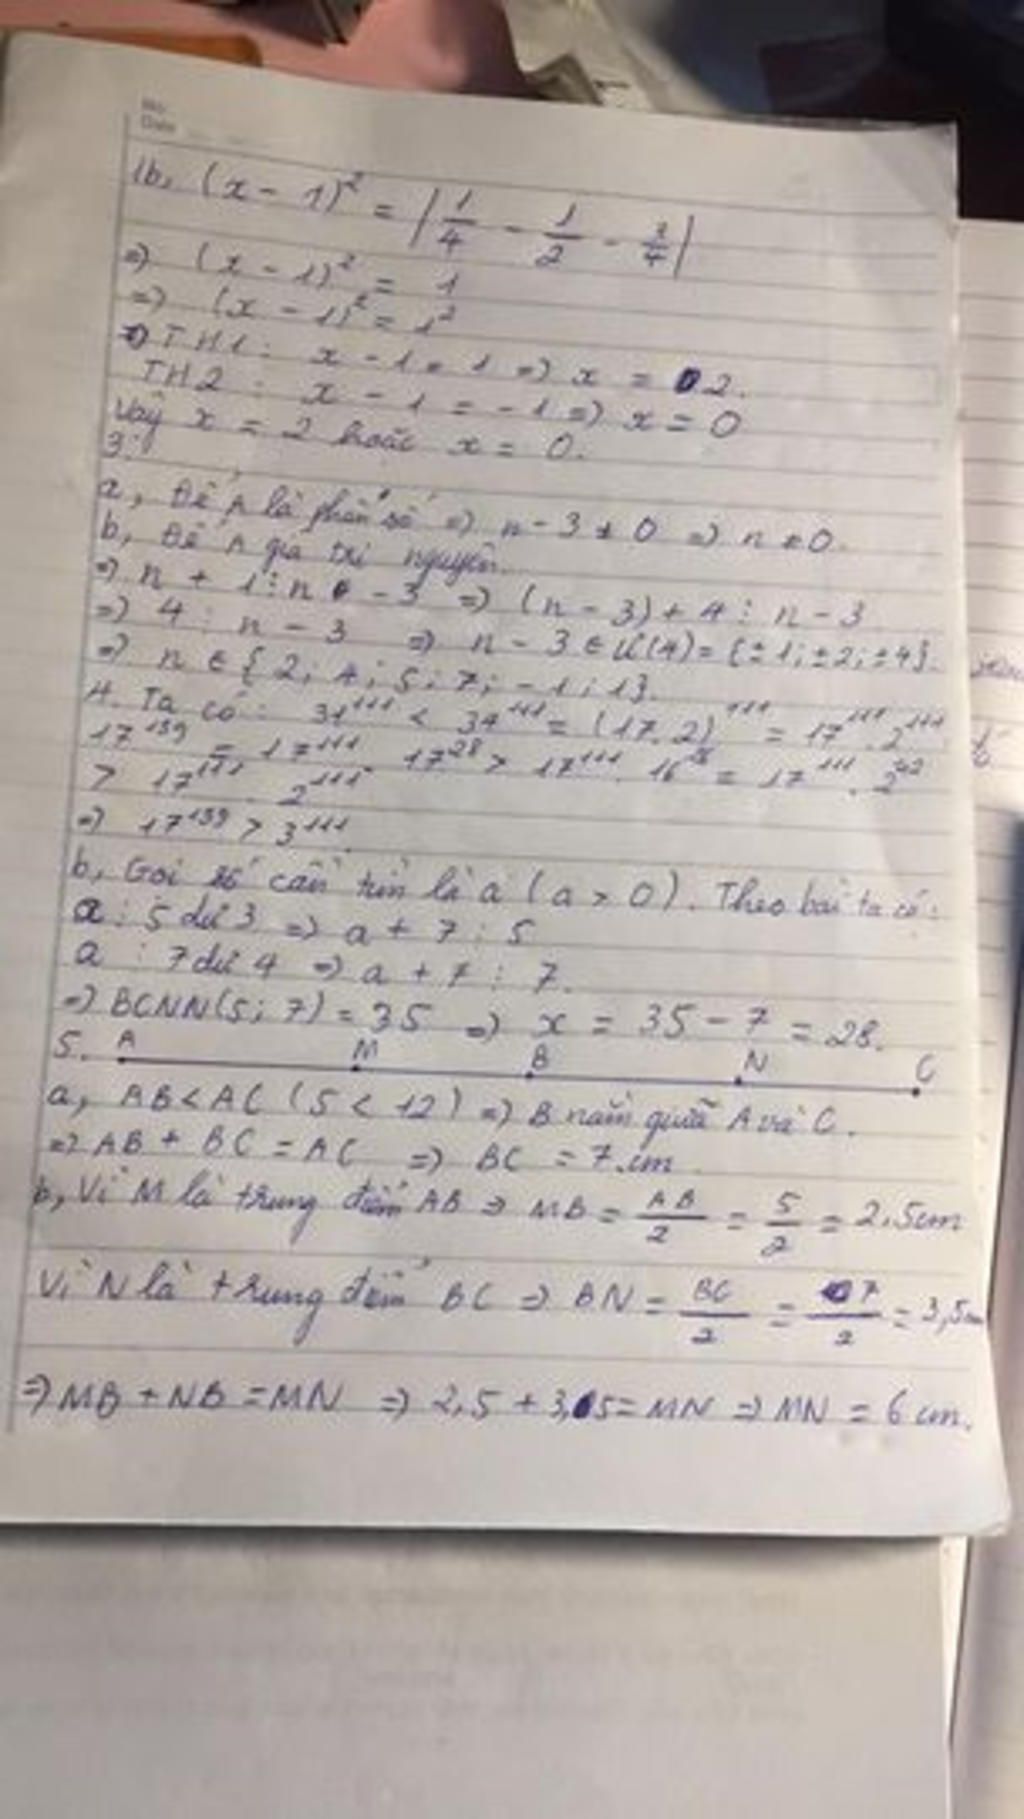 No.
Date
1b, (x - 1)² = |1/4 - 1/2 - 3/4|
=> (x - 1)² = 1
=> (x - 1)² = 1²
=> TH1: x - 1 = 1 => x = 2.
TH2: x - 1 = -1 => x = 0
Vậy x = 2 hoặc x = 0.
3:
a, Để A là phân số => n - 3 ≠ 0 => n ≠ 0.
b, Để A gia trị nguyên.
=> n + 1 ⋮ n - 3 => (n - 3) + 4 ⋮ n - 3
=> 4 ⋮ n - 3 => n - 3 ∈ Ư(4) = {±1; ±2; ±4}.
=> n ∈ {2; 4; 5; 7; -1; 1}.
4. Ta có: 31¹¹¹ < 34¹¹¹ = (17.2)¹¹¹ = 17¹¹¹.2¹¹¹
17¹³⁹ = 17¹¹¹. 17²⁸ > 17¹¹¹. 16²⁸ = 17¹¹¹.
> 17¹¹¹. 2¹¹¹.
=> 17¹³⁹ > 3¹¹¹.
b, Gọi số cần tìm là a (a > 0). Theo bài ta có:
a : 5 dư 3 => a + 7 ⋮ 5
a : 7 dư 4 => a + 7 ⋮ 7.
=> BCNN(5; 7) = 35 => x = 35 - 7 = 28.
5. A M B N C
a, AB < AC (5 < 12) => B nằm giữa A và C.
=> AB + BC = AC => BC = 7 cm
b, Vì M là trung điểm AB => MB = AB/2 = 5/2 = 2,5cm
Vì N là trung điểm BC => BN = BC/2 = 7/2 = 3,5cm
=> MB + NB = MN => 2,5 + 3,5 = MN => MN = 6 cm.